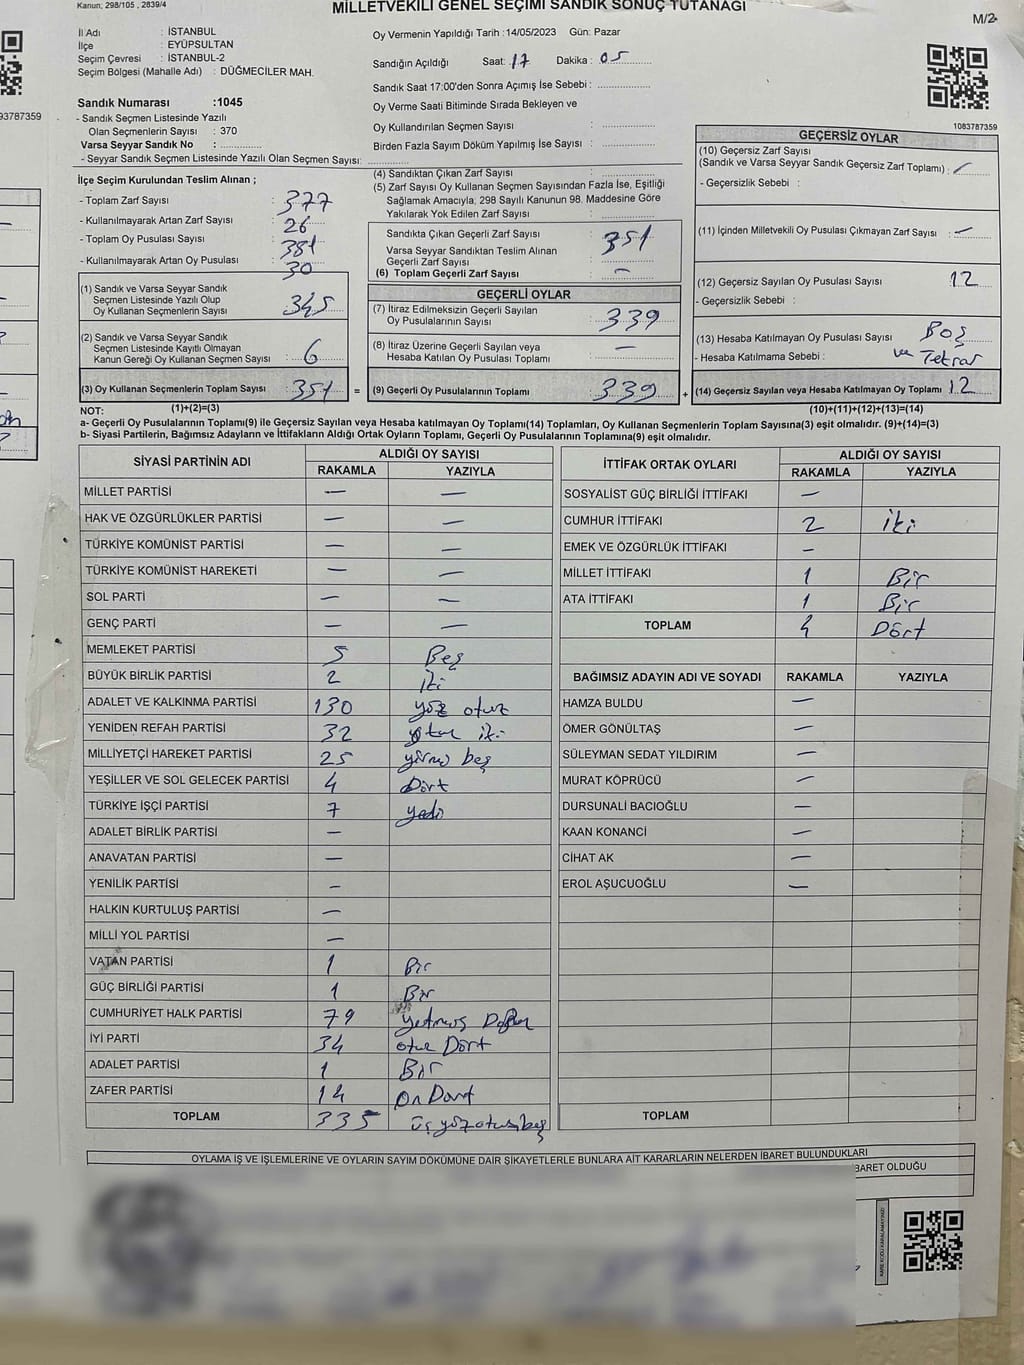 Kanun; 298/105 , 2839/4
MİLLETVEKİLİ GENEL SEÇİMİ SANDIK SONUÇ TUTANAĞI
M/2
İl Adı : İSTANBUL
İlçe : EYÜPSULTAN
Seçim Çevresi : İSTANBUL-2
Seçim Bölgesi (Mahalle Adı) : DÜĞMECİLER MAH.
Sandık Numarası :1045
- Sandık Seçmen Listesinde Yazılı
Olan Seçmenlerin Sayısı : 370
Varsa Seyyar Sandık No :
- Seyyar Sandık Seçmen Listesinde Yazılı Olan Seçmen Sayısı:
Oy Vermenin Yapıldığı Tarih :14/05/2023 Gün: Pazar
Sandığın Açıldığı Saat: 17 Dakika : 05
Sandık Saat 17:00'den Sonra Açımış İse Sebebi :
Oy Verme Saati Bitiminde Sırada Bekleyen ve
Oy Kullandırılan Seçmen Sayısı :
Birden Fazla Sayım Döküm Yapılmış İse Sayısı :
93787359
1083787359
İlçe Seçim Kurulundan Teslim Alınan ;
- Toplam Zarf Sayısı : 377
- Kullanılmayarak Artan Zarf Sayısı : 26
- Toplam Oy Pusulası Sayısı : 381
- Kullanılmayarak Artan Oy Pusulası : 30
(1) Sandık ve Varsa Seyyar Sandık
Seçmen Listesinde Yazılı Olup
Oy Kullanan Seçmenlerin Sayısı : 345
(2) Sandık ve Varsa Seyyar Sandık
Seçmen Listesinde Kayıtlı Olmayan
Kanun Gereği Oy Kullanan Seçmen Sayısı : 6
(3) Oy Kullanan Seçmenlerin Toplam Sayısı : 351 =
(1)+(2)=(3)
(4) Sandıktan Çıkan Zarf Sayısı :
(5) Zarf Sayısı Oy Kullanan Seçmen Sayısından Fazla İse, Eşitliği
Sağlamak Amacıyla, 298 Sayılı Kanunun 98. Maddesine Göre
Yakılarak Yok Edilen Zarf Sayısı :
Sandıkta Çıkan Geçerli Zarf Sayısı : 351
Varsa Seyyar Sandıktan Teslim Alınan
Geçerli Zarf Sayısı :
(6) Toplam Geçerli Zarf Sayısı : —
GEÇERLİ OYLAR
(7) İtiraz Edilmeksizin Geçerli Sayılan
Oy Pusulalarının Sayısı : 339
(8) İtiraz Üzerine Geçerli Sayılan veya
Hesaba Katılan Oy Pusulası Toplamı : —
(9) Geçerli Oy Pusulalarının Toplamı : 339 +
GEÇERSİZ OYLAR
(10) Geçersiz Zarf Sayısı
(Sandık ve Varsa Seyyar Sandık Geçersiz Zarf Toplamı) : —
- Geçersizlik Sebebi :
(11) İçinden Milletvekili Oy Pusulası Çıkmayan Zarf Sayısı : —
(12) Geçersiz Sayılan Oy Pusulası Sayısı : 12
- Geçersizlik Sebebi :
(13) Hesaba Katılmayan Oy Pusulası Sayısı : Boş
- Hesaba Katılmama Sebebi : ve Tekrar
(14) Geçersiz Sayılan veya Hesaba Katılmayan Oy Toplamı : 12
(10)+(11)+(12)+(13)=(14)
NOT:
a- Geçerli Oy Pusulalarının Toplamı(9) ile Geçersiz Sayılan veya Hesaba katılmayan Oy Toplamı(14) Toplamları, Oy Kullanan Seçmenlerin Toplam Sayısına(3) eşit olmalıdır. (9)+(14)=(3)
b- Siyasi Partilerin, Bağımsız Adayların ve İttifakların Aldığı Ortak Oyların Toplamı, Geçerli Oy Pusulalarının Toplamına(9) eşit olmalıdır.
SİYASİ PARTİNİN ADI ALDIĞI OY SAYISI
RAKAMLA YAZIYLA
MİLLET PARTİSİ — —
HAK VE ÖZGÜRLÜKLER PARTİSİ — —
TÜRKİYE KOMÜNİST PARTİSİ — —
TÜRKİYE KOMÜNİST HAREKETİ — —
SOL PARTİ — —
GENÇ PARTİ — —
MEMLEKET PARTİSİ 5 Beş
BÜYÜK BİRLİK PARTİSİ 2 iki
ADALET VE KALKINMA PARTİSİ 130 yüz otuz
YENİDEN REFAH PARTİSİ 32 otuz iki
MİLLİYETÇİ HAREKET PARTİSİ 25 yirmi beş
YEŞİLLER VE SOL GELECEK PARTİSİ 4 Dört
TÜRKİYE İŞÇİ PARTİSİ 7 yedi
ADALET BİRLİK PARTİSİ —
ANAVATAN PARTİSİ —
YENİLİK PARTİSİ —
HALKIN KURTULUŞ PARTİSİ —
MİLLİ YOL PARTİSİ —
VATAN PARTİSİ 1 Bir
GÜÇ BİRLİĞİ PARTİSİ 1 Bir
CUMHURİYET HALK PARTİSİ 79 yetmiş Dokuz
İYİ PARTİ 34 otuz Dört
ADALET PARTİSİ 1 Bir
ZAFER PARTİSİ 14 On Dört
TOPLAM 335 üçyüz otuz beş
İTTİFAK ORTAK OYLARI ALDIĞI OY SAYISI
RAKAMLA YAZIYLA
SOSYALİST GÜÇ BİRLİĞİ İTTİFAKI —
CUMHUR İTTİFAKI 2 iki
EMEK VE ÖZGÜRLÜK İTTİFAKI —
MİLLET İTTİFAKI 1 Bir
ATA İTTİFAKI 1 Bir
TOPLAM 4 Dört
BAĞIMSIZ ADAYIN ADI VE SOYADI RAKAMLA YAZIYLA
HAMZA BULDU —
ÖMER GÖNÜLTAŞ —
SÜLEYMAN SEDAT YILDIRIM —
MURAT KÖPRÜCÜ —
DURSUNALİ BACIOĞLU —
KAAN KONANCİ —
CİHAT AK —
EROL AŞUCUOĞLU —
TOPLAM
OYLAMA İŞ VE İŞLEMLERİNE VE OYLARIN SAYIM DÖKÜMÜNE DAİR ŞİKAYETLERLE BUNLARA AİT KARARLARIN NELERDEN İBARET BULUNDUKLARI
BARET OLDUĞU